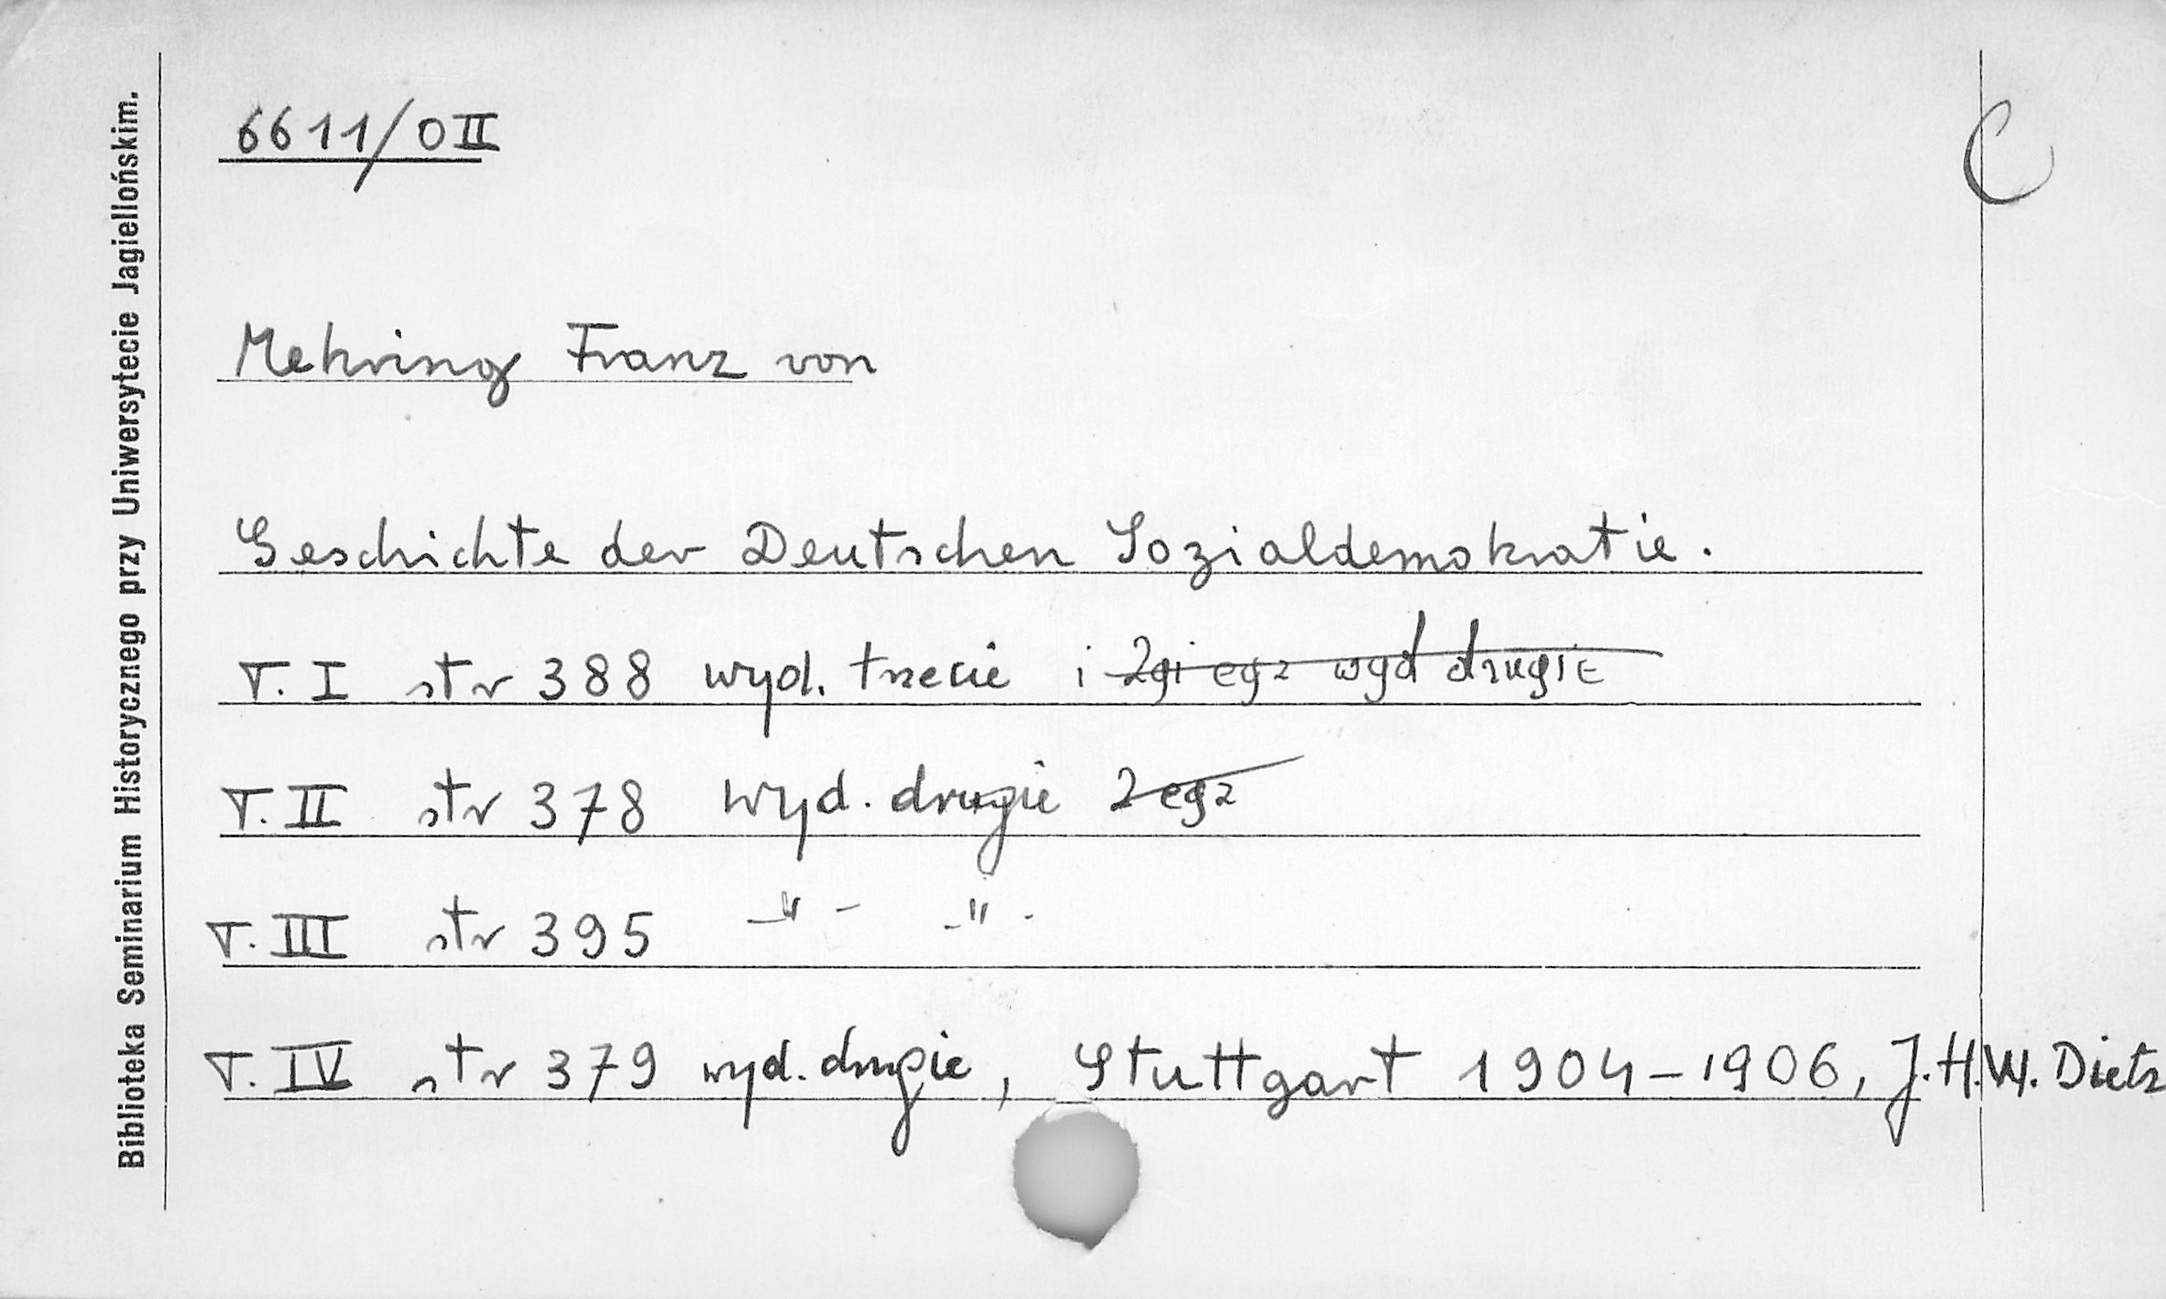 6611/OII
C
Mehring Franz von
Geschichte der Deutschen Sozialdemokratie.
T. I str 388 wyd. trzecie i 2gi egz wyd drugie
T. II str 378 wyd. drugie 2 egz
T. III str 395 -"- -"-
T. IV str 379 wyd. drugie, Stuttgart 1904-1906, J.H.W. Dietz
Biblioteka Seminarium Historycznego przy Uniwersytecie Jagiellońskim.